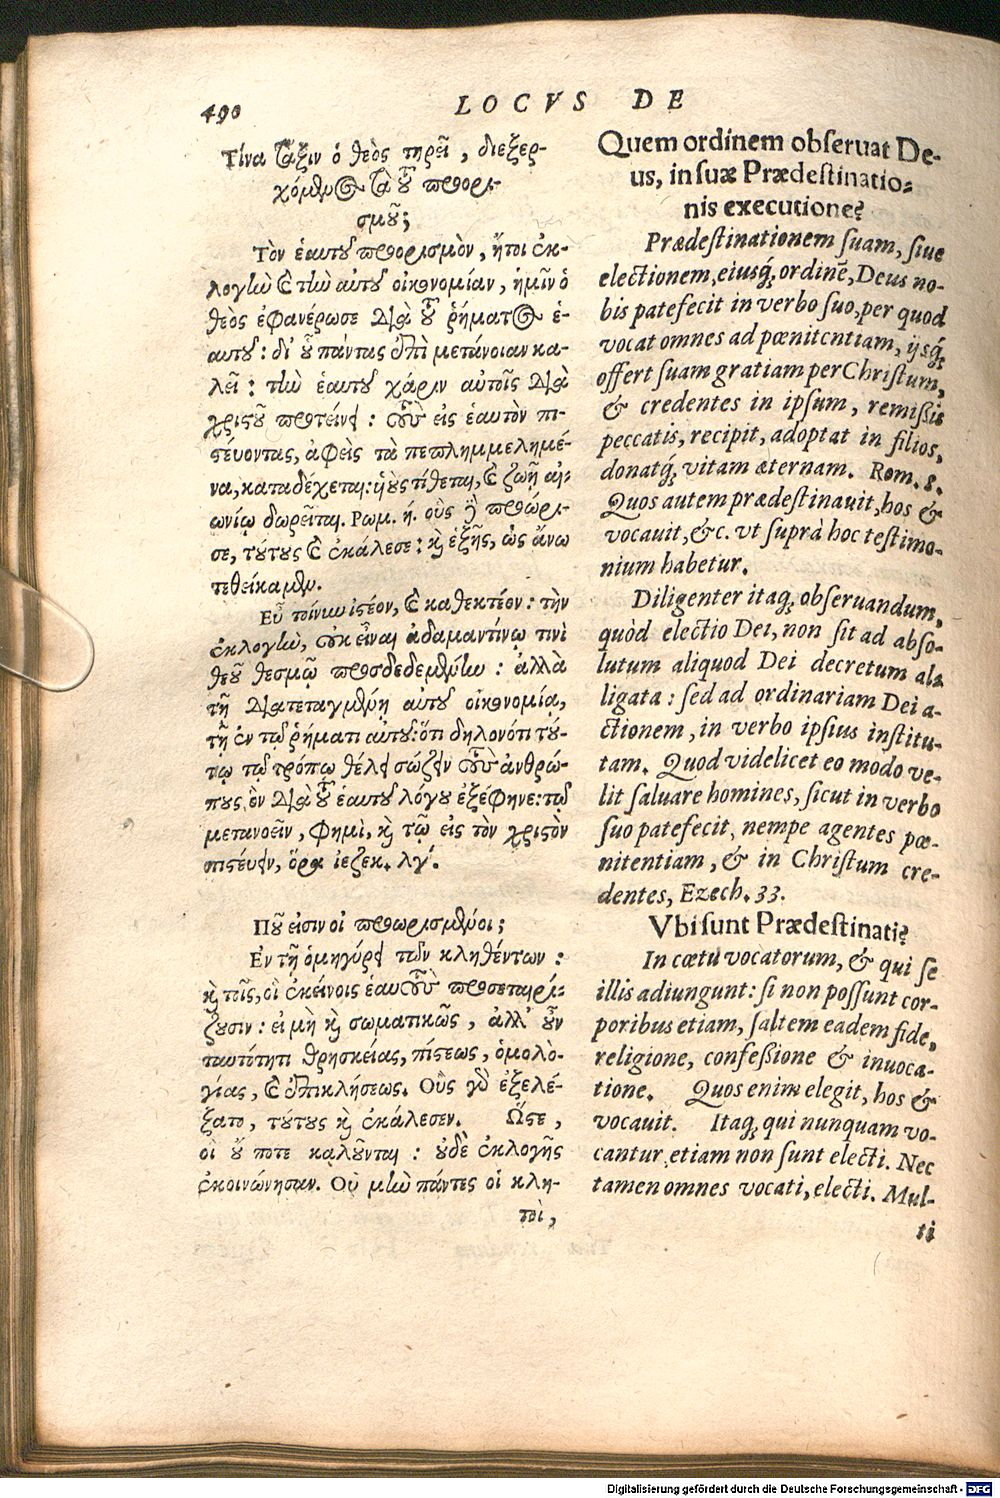 490
LOCVS DE
Τίνα τάξιν ὁ θεὸς τηρεῖ, διεξερ-
χόμενος τὰ τοῦ προορι-
σμοῦ;
Τὸν ἑαυτοῦ προορισμὸν, ἤτοι ἐκ-
λογὴν καὶ τὴν αὐτοῦ οἰκονομίαν, ἡμῖν ὁ
θεὸς ἐφανέρωσε διὰ τοῦ ῥήματος ἑ-
αυτοῦ: δι' οὗ πάντας ἐπὶ μετάνοιαν κα-
λεῖ: τὴν ἑαυτοῦ χάριν αὐτοῖς διὰ
χριστοῦ προτείνει: τοὺς εἰς ἑαυτὸν πι-
στεύοντας, ἀφεὶς τὰ πεπλημμελημέ-
να, καταδέχεται: ὑοὺς τίθεται, καὶ ζωῇ αἰ-
ωνίῳ δωρεῖται. Ρωμ. ή. οὓς δὲ προώρι-
σε, τούτους καὶ ἐκάλεσε: καὶ ἑξῆς, ὡς ἄνω
τεθείκαμεν.
Εὖ τοίνυν ἰστέον, καὶ καθεκτέον: τὴν
ἐκλογὴν, οὐκ εἶναι ἀδαμαντίνῳ τινὶ
θεοῦ θεσμῷ προσδεδεμένην: ἀλλὰ
τῇ διατεταγμένῃ αὐτοῦ οἰκονομίᾳ,
τῇ ἐν τῷ ῥήματι αὐτοῦ: ὅτι δηλονότι τού-
τῳ τῷ τρόπῳ θέλει σώζειν τοὺς ἀνθρώ-
πους, ὃν διὰ τοῦ ἑαυτοῦ λόγου ἐξέφηνε: τῷ
μετανοεῖν, φημὶ, καὶ τῷ εἰς τὸν χριστὸν
πιστεύειν, ὅρα ἰεζεκ. λγ'.
Ποῦ εἰσιν οἱ προωρισμένοι;
Εν τῇ ὁμηγύρει τῶν κληθέντων:
καὶ τοῖς, οἳ ἐκείνοις ἑαυτοὺς προσεταιρί-
ζουσιν: εἰ μὴ καὶ σωματικῶς, ἀλλ' οὖν
ταυτότητι θρησκείας, πίστεως, ὁμολο-
γίας, καὶ ἐπικλήσεως. Οὓς γὰρ ἐξελέ-
ξατο, τούτους καὶ ἐκάλεσεν. Ὥστε,
οἳ οὔ ποτε καλοῦνται: οὐδὲ ἐκλογῆς
ἐκοινώνησαν. Οὐ μὴν πάντες οἱ κλη-
τοὶ,
Quem ordinem obſeruat De-
us, in ſuæ Prædeſtinatio-
nis executione?
Prædeſtinationem ſuam, ſiue
electionem, eiusq́; ordinẽ, Deus no-
bis patefecit in verbo ſuo, per quod
vocat omnes ad pœnitentiam, ijsq́;
offert ſuam gratiam per Chriſtum,
& credentes in ipſum, remißis
peccatis, recipit, adoptat in filios,
donatq́; vitam æternam. Rom. 8.
Quos autem prædeſtinauit, hos &
vocauit, &c. vt ſuprà hoc teſtimo-
nium habetur.
Diligenter itaq; obſeruandum,
quòd electio Dei, non ſit ad abſo-
lutum aliquod Dei decretum al-
ligata: ſed ad ordinariam Dei a-
ctionem, in verbo ipſius inſtitu-
tam. Quod videlicet eo modo ve-
lit ſaluare homines, ſicut in verbo
ſuo patefecit, nempe agentes pœ-
nitentiam, & in Chriſtum cre-
dentes, Ezech. 33.
Vbi ſunt Prædeſtinati?
In cœtu vocatorum, & qui ſe
illis adiungunt: ſi non poſſunt cor-
poribus etiam, ſaltem eadem fide,
religione, confeßione & inuoca-
tione. Quos enim elegit, hos &
vocauit. Itaq; qui nunquam vo-
cantur, etiam non ſunt electi. Nec
tamen omnes vocati, electi. Mul-
ti
Digitalisierung gefördert durch die Deutsche Forschungsgemeinschaft - DFG